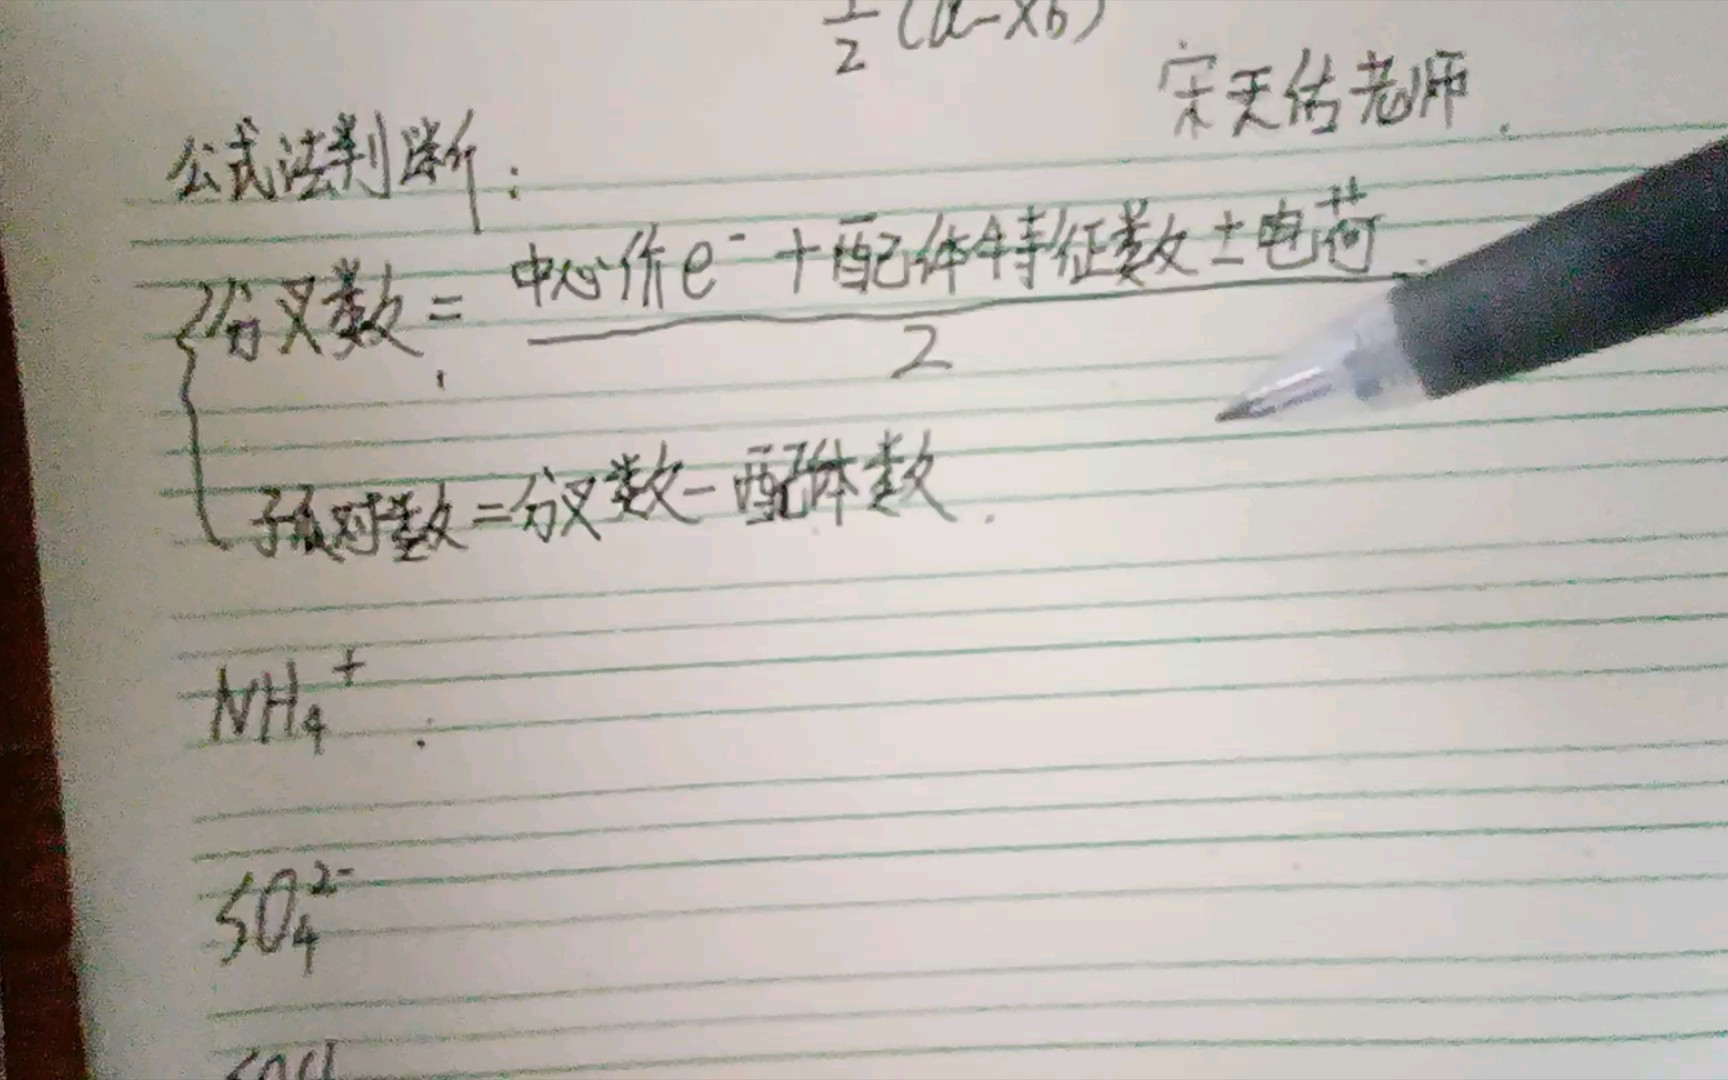 1/2 (a-xb)
宋天佑老师.
公式法判断:
分叉数 = 中心价e⁻ + 配体特征数 ± 电荷 / 2
孤对数 = 分叉数 - 配体数.
NH₄⁺ :
SO₄²⁻